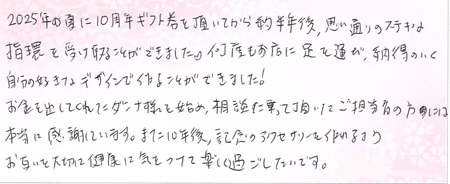 2025年の夏に10周年ギフト券を頂いてから約半年後、思い通りのステキな
指環を受け取ることができました。何度もお店に足を運び、納得のいく
自分の好きなデザインで作ることができました!
お金を出してくれたダンナ様を始め、相談に乗って頂いたご担当者の方々には
本当に感謝しています。また10年後、記念のアクセサリーを作れるよう
お互いを大切に健康に気をつけて楽しく過ごしたいです。